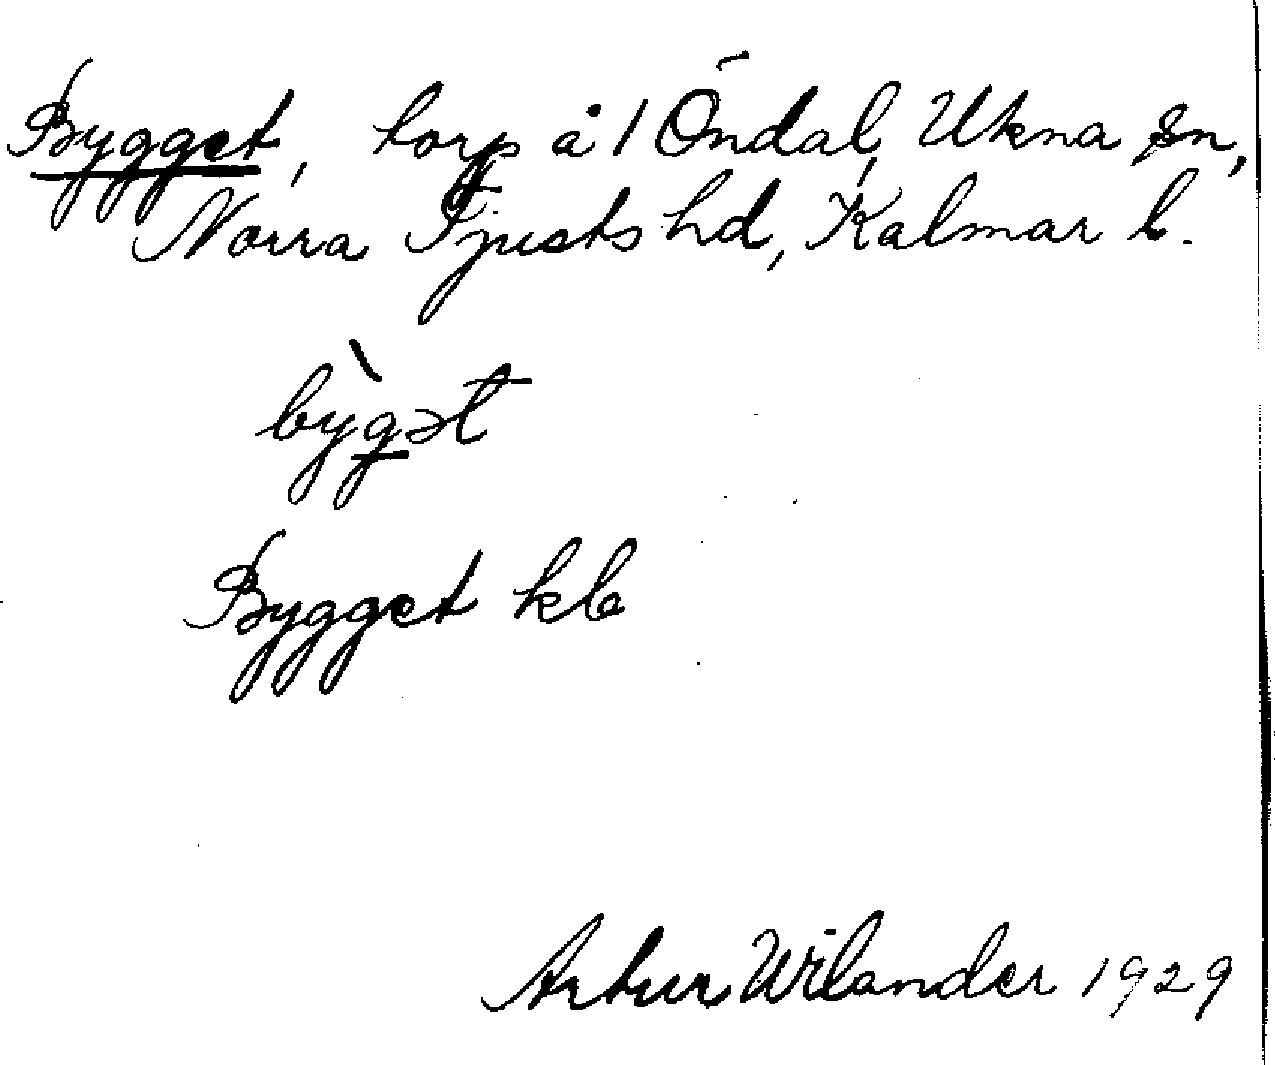 Bygget, torp å 1 Öndal, Ukna sn,
Norra Tjusts hd, Kalmar l.
bỳgət
Bygget kb
Artur Wilander 1929